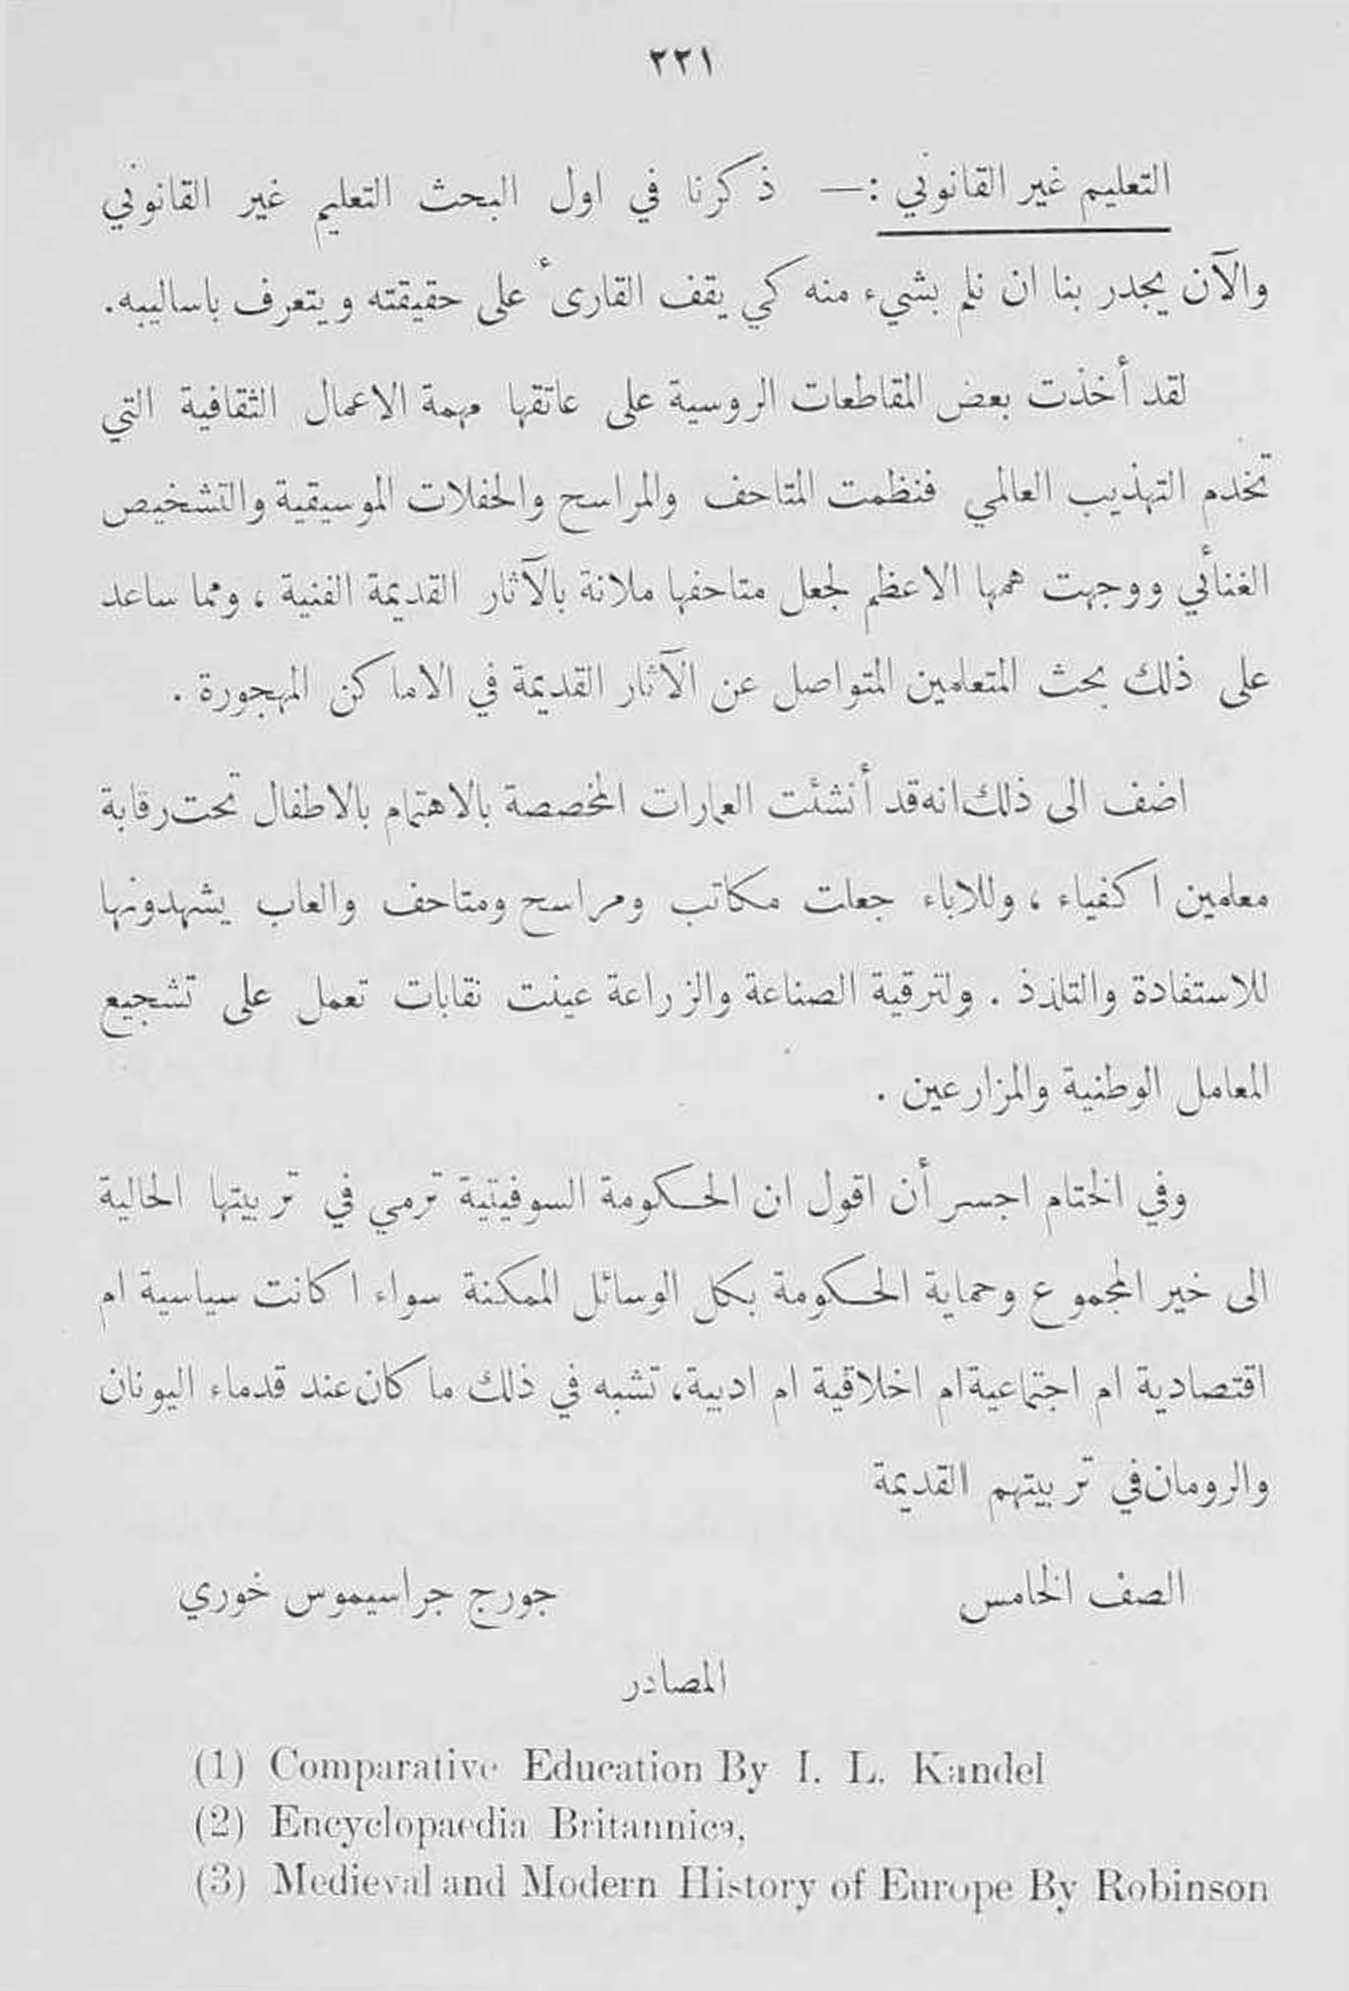 ٢٢١
التعليم غير القانوني :— ذكرنا في اول البحث التعليم غير القانوني
والآن يجدر بنا ان نلم بشيء منه كي يقف القارىء على حقيقته ويتعرف باساليبه.
لقد أخذت بعض المقاطعات الروسية على عاتقها مهمة الاعمال الثقافية التي
تخدم التهذيب العالمي فنظمت المتاحف والمراسح والحفلات الموسيقية والتشخيص
الغنأئي ووجهت همها الاعظم لجعل متاحفها ملانة بالآثار القديمة الفنية ، ومما ساعد
على ذلك بحث المتعلمين المتواصل عن الآثار القديمة في الاماكن المهجورة .
اضف الى ذلك انه قد أنشئت العمارات المخصصة بالاهتمام بالاطفال تحت رقابة
معلمين اكفياء ، وللاباء جعلت مكاتب ومراسح ومتاحف والعاب يشهدونها
للاستفادة والتلذذ . ولترقية الصناعة والزراعة عينت نقابات تعمل على تشجيع
المعامل الوطنية والمزارعين .
وفي الختام اجسر أن اقول ان الحكومة السوفيتية ترمي في تربيتها الحالية
الى خير المجموع وحماية الحكومة بكل الوسائل الممكنة سواء اكانت سياسية ام
اقتصادية ام اجتماعية ام اخلاقية ام ادبية، تشبه في ذلك ما كان عند قدماء اليونان
والرومان في تربيتهم القديمة
الصف الخامس جورج جراسيموس خوري
المصادر
(1) Comparative Education By I. L. Kandel
(2) Encyclopaedia Britannica,
(3) Medieval and Modern History of Europe By Robinson